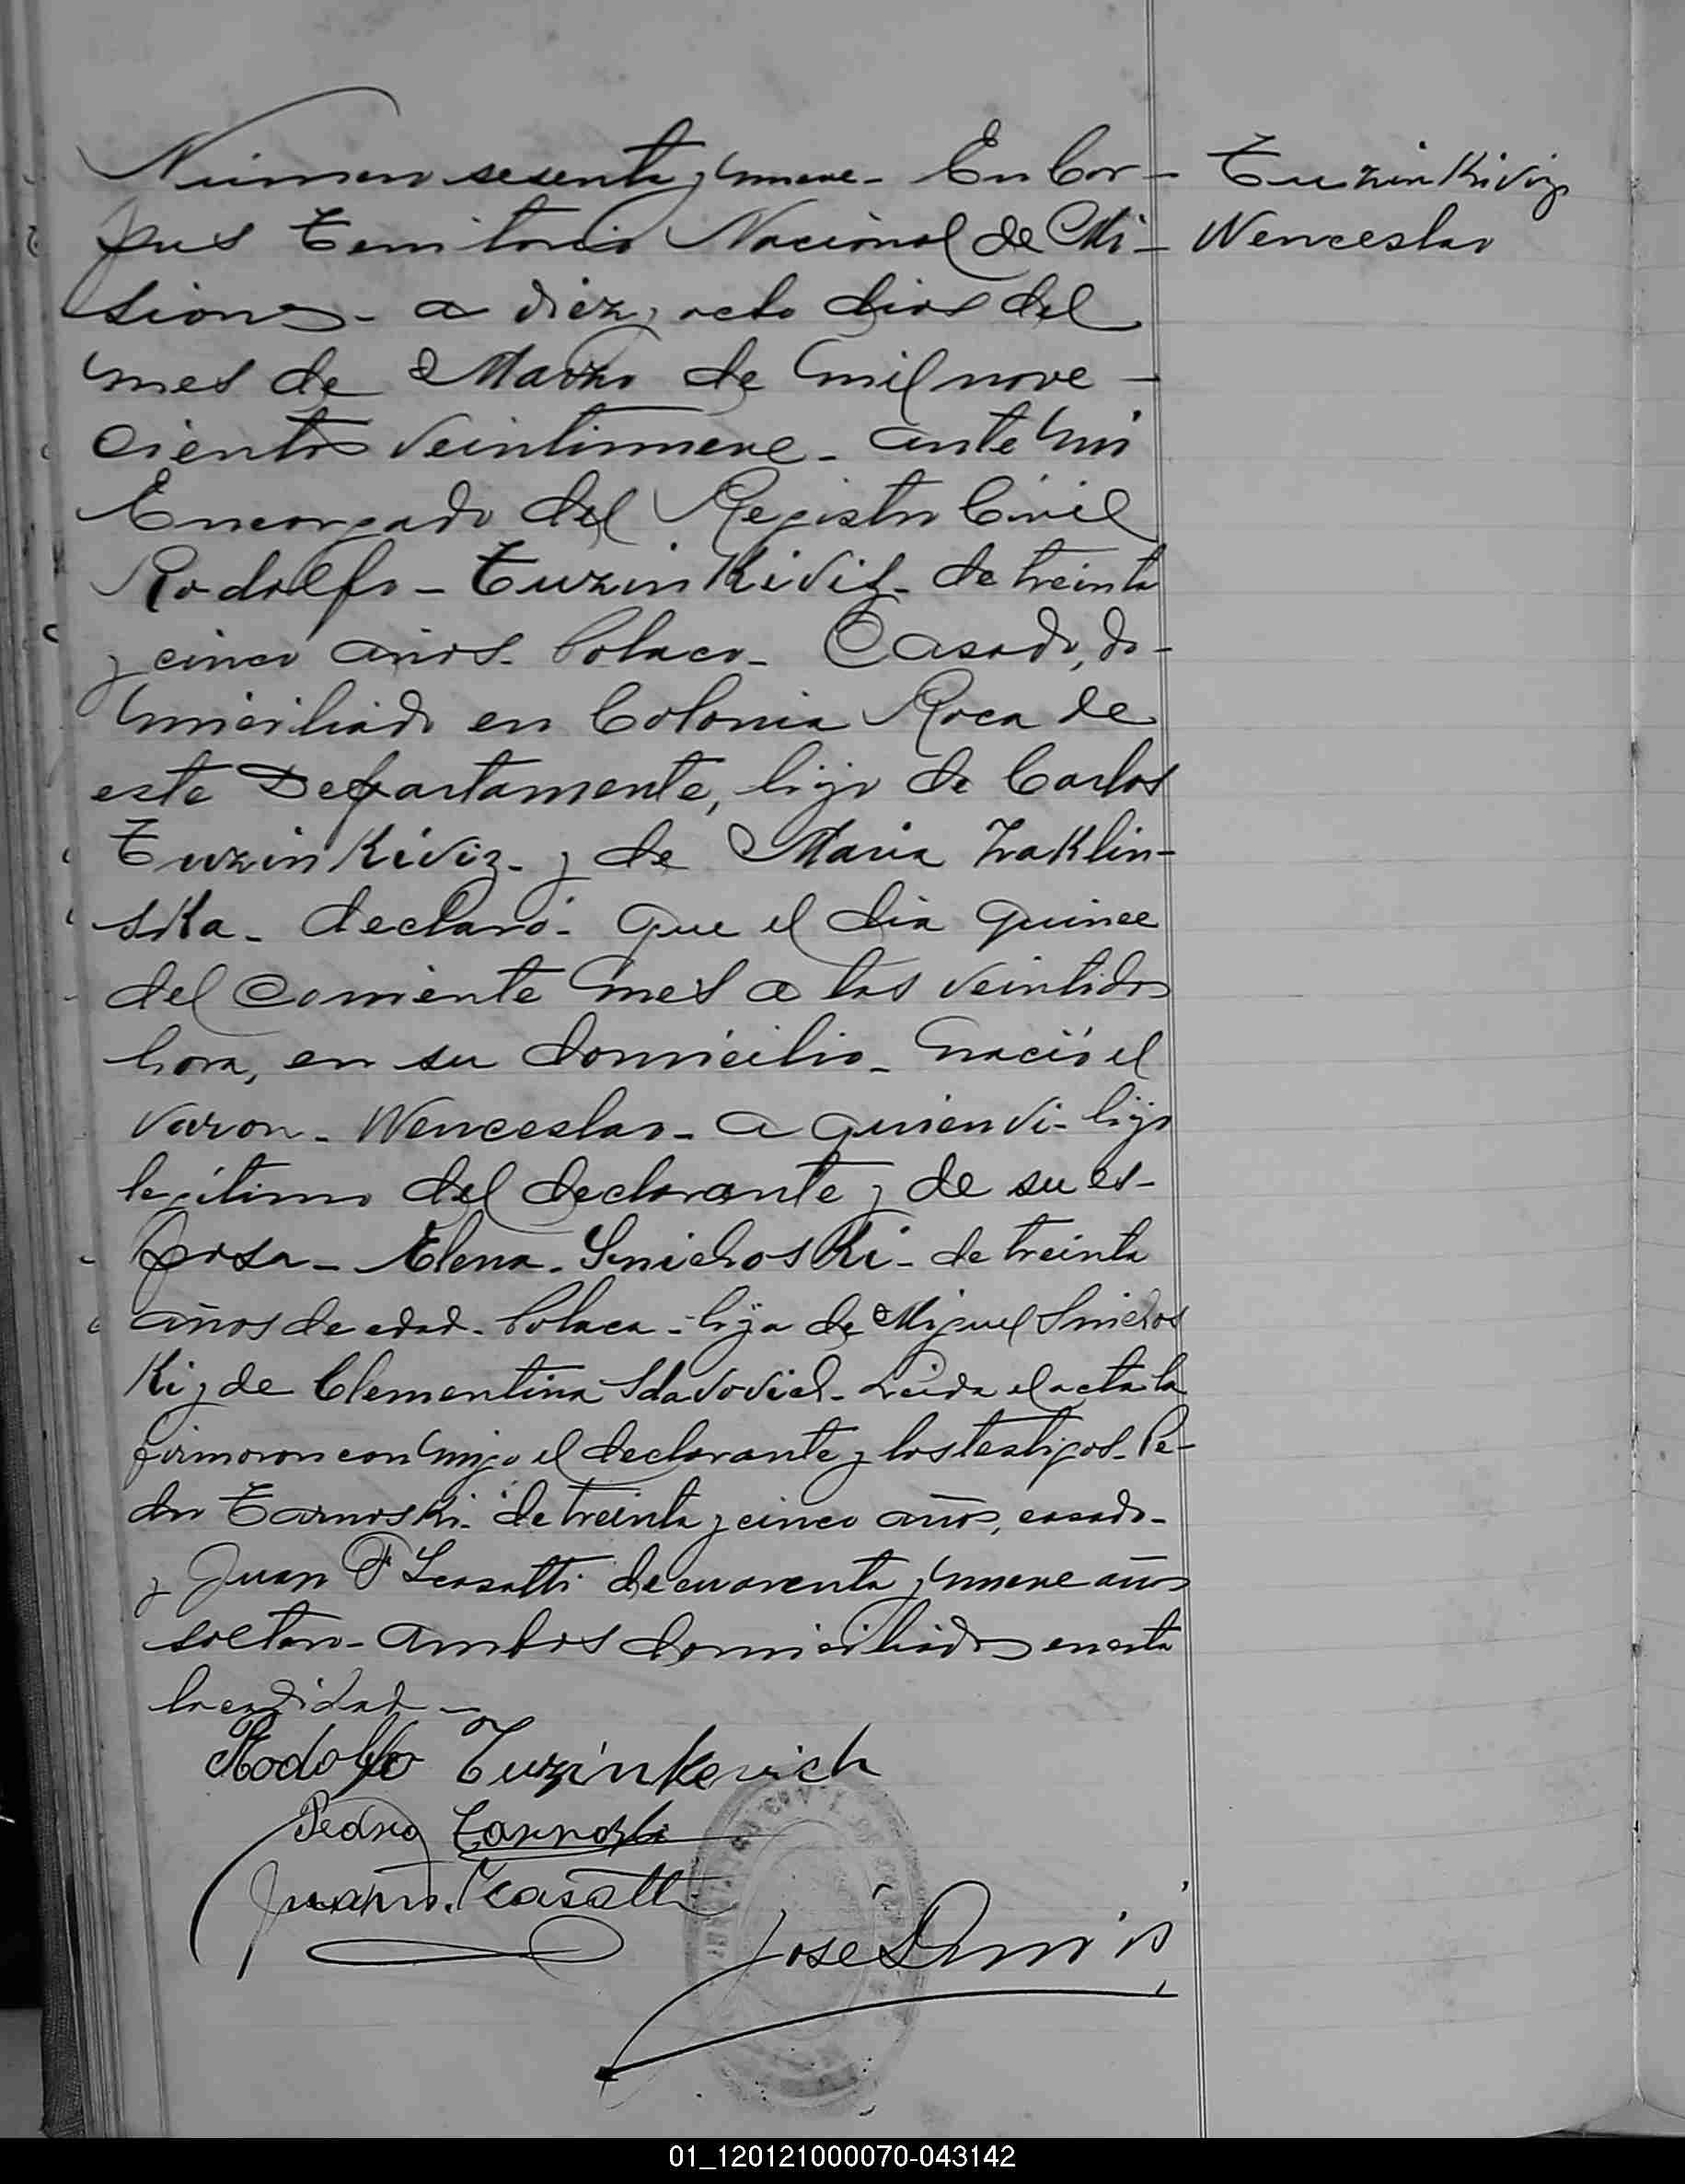 Número sesenta y nueve - En Cor-
pus Territorio Nacional de Mi-
siones - a diez y ocho dias del
mes de Marzo de mil nove-
cientos veintinueve - ante mi
Encargado del Registro Civil
Rodolfo - Tuzinkiviz - de treinta
y cinco años - Polaco - Casado, do-
miciliado en Colonia Roca de
este Departamente, hijo de Carlos
Tuzinkiviz - y de Maria Zaklin-
ska - declaró - Que el dia quince
del corriente mes a las veintidos
hora, en su domicilio - nació el
varon - Wenceslao - a quien vi - hijo
legitimo del declarante y de su es-
posa - Elena - Smichoski - de treinta
años de edad - Polaca - hija de Miguel Smichos
ki y de Clementina - Leida el acta la
firmaron conmigo el declarante y los testigos - Pe-
dro Tarnoski - de treinta y cinco años, casado -
y Juan F Leasatti de cuarenta y nueve años
soltero - ambos domiciliados en esta
localidad -
Rodolfo Tuzinkevich
Pedro Tarnoski
Juan
José
Tuzinkiviz
Wenceslao
01_120121000070-043142